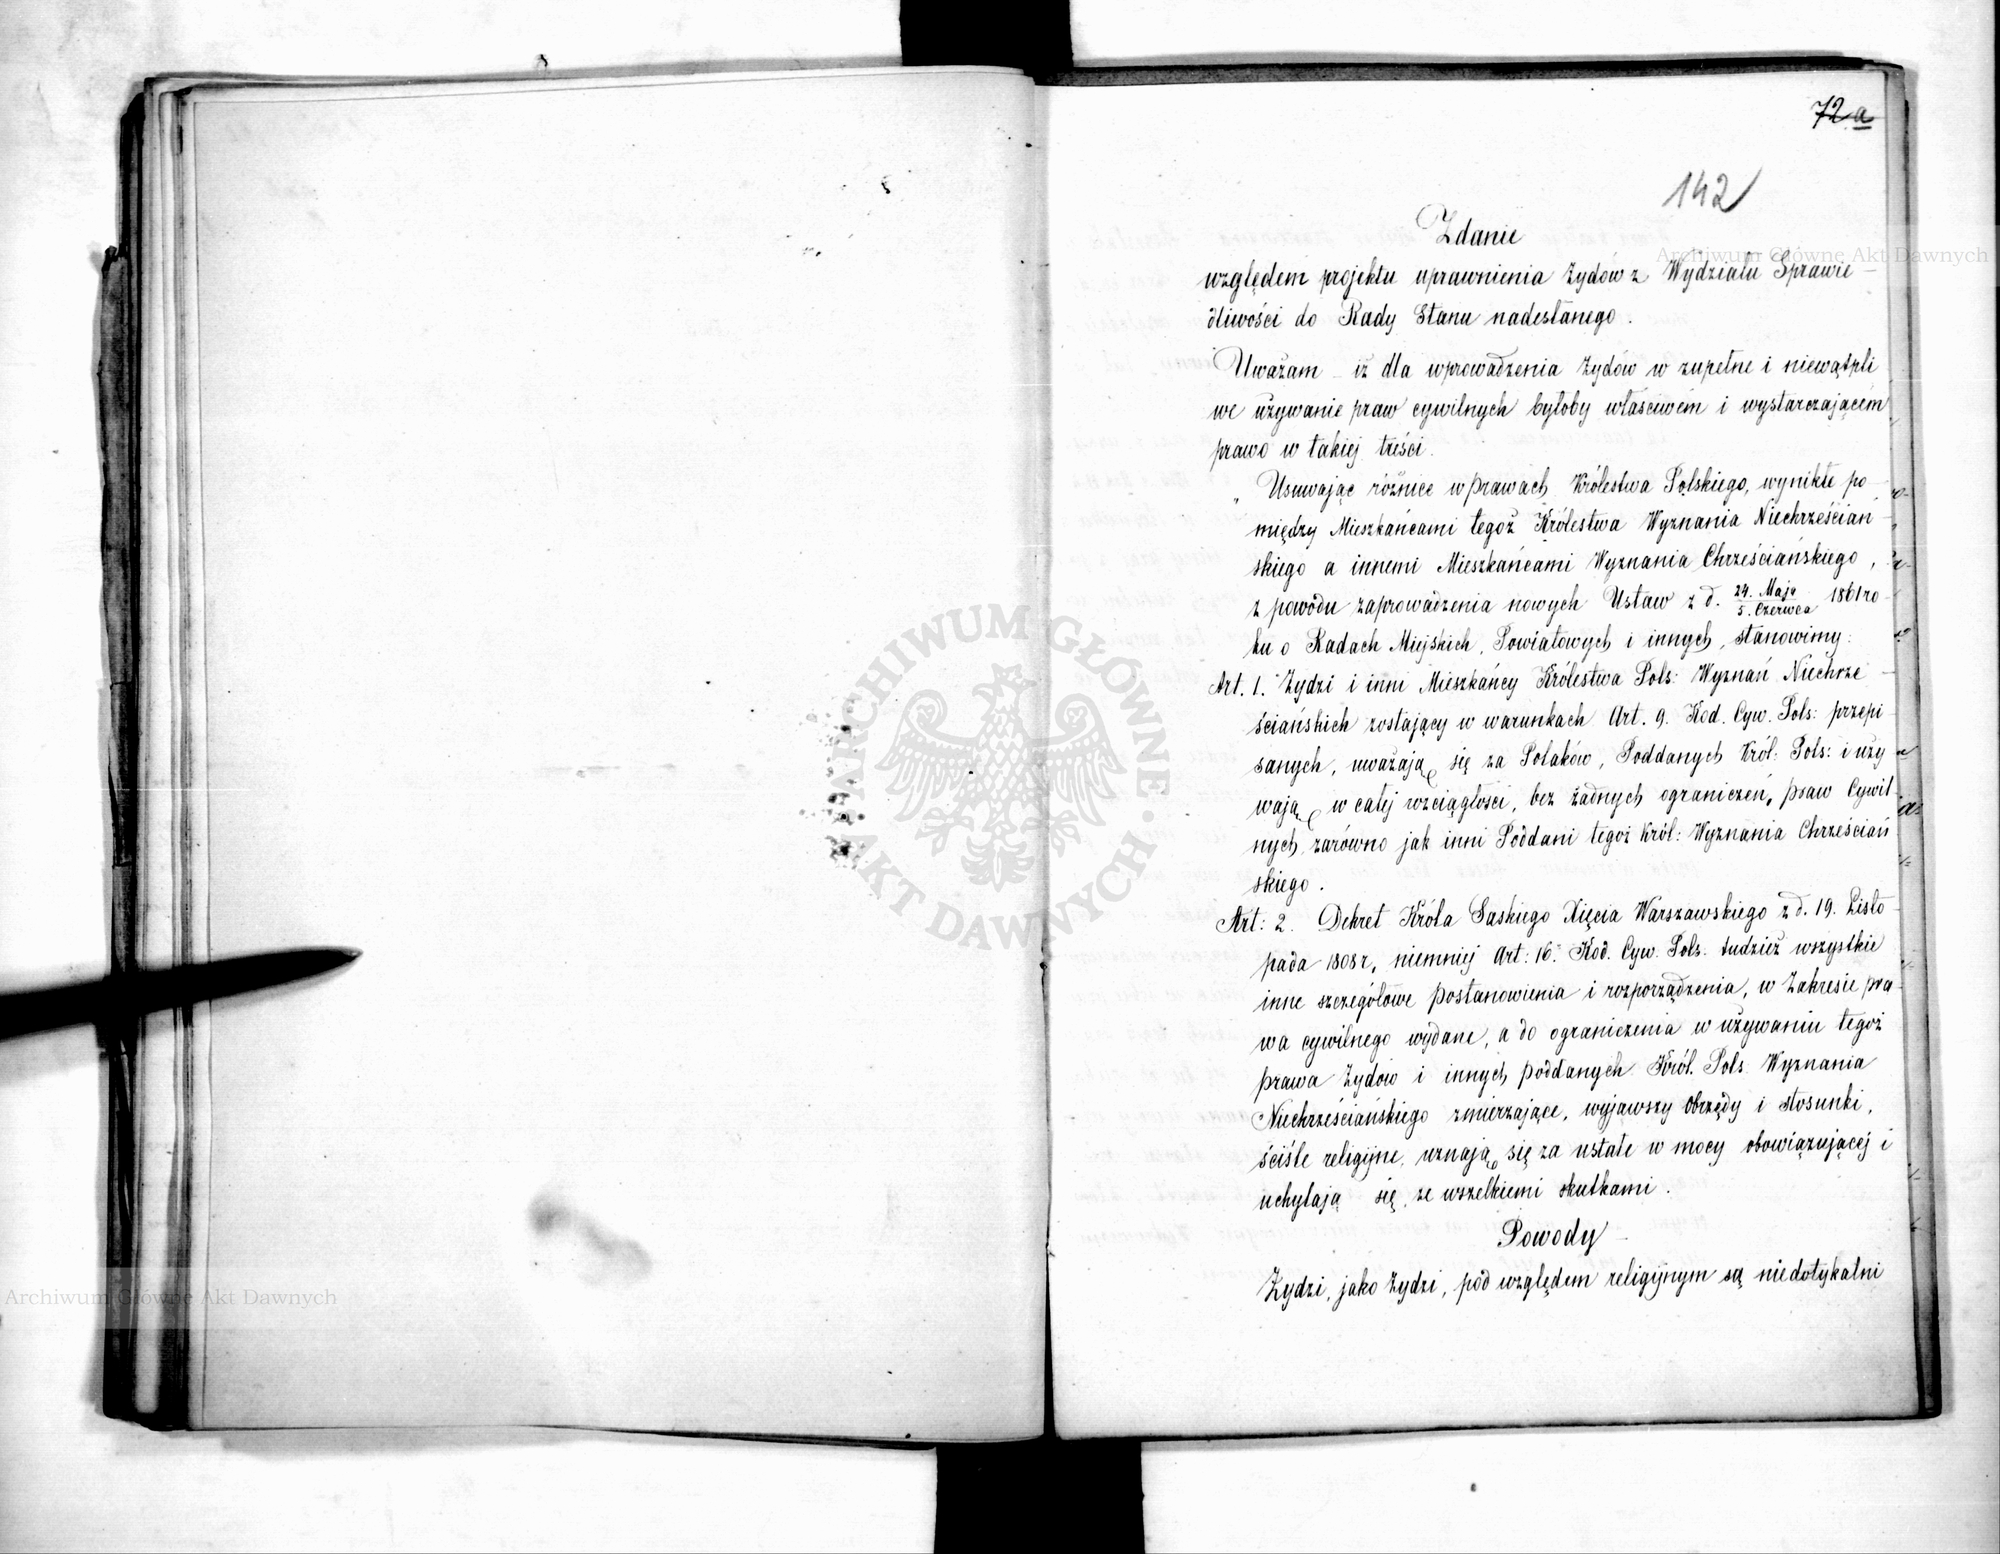 72 a
142
Zdanie
względem projektu uprawnienia Żydów z Wydziału Sprawie-
dliwości do Rady Stanu nadesłanego.
Uważam iż dla wprowadzenia Żydów w zupełne i niewątpli
we używanie praw cywilnych byłoby właściwém i wystarczającém
prawo w takiej treści.
„Usuwając różnice w prawach Królestwa Polskiego, wynikłe po-
między Mieszkańcami tegoż Królestwa Wyznania Niechrześciań-
skiego a innemi Mieszkańcami Wyznania Chrześciańskiego,
z powodu zaprowadzenia nowych Ustaw z d. 24. Maja / 5. Czerwca 1861 ro-
ku o Radach Miejskich, Powiatowych i innych, stanowimy:
Art. 1. Żydzi i inni Mieszkańcy Królestwa Pols: Wyznań Niechrze-
ściańskich zostający w warunkach Art. 9. Kod. Cyw. Pols: przepi
sanych, uważają się za Polaków, Poddanych Król: Pols: i uży
wają w całej rozciągłości, bez żadnych ograniczeń, praw Cywil-
nych, zarówno jak inni Poddani tegoż Król: Wyznania Chrześciań
skiego.
Art: 2. Dekret Króla Saskiego Xięcia Warszawskiego z d. 19. Listo-
pada 1808 r, niemniej Art: 16. Kod. Cyw. Pols. tudzież wszystkie
inne szczegółowe postanowienia i rozporządzenia, w zakresie pra-
wa cywilnego wydane, a do ograniczenia w używaniu tegoż
prawa Żydów i innych poddanych Król. Pols. Wyznania
Niechrześciańskiego zmierzające, wyjąwszy obrzędy i stosunki,
ściśle religijne, uznają się za ustałe w mocy obowiązującej i
uchylają się, ze wszelkiemi skutkami.
Powody
Żydzi, jako Żydzi, pod względem religijnym są niedotykalni
ARCHIWUM GŁÓWNE AKT DAWNYCH
Archiwum Główne Akt Dawnych
Archiwum Główne Akt Dawnych